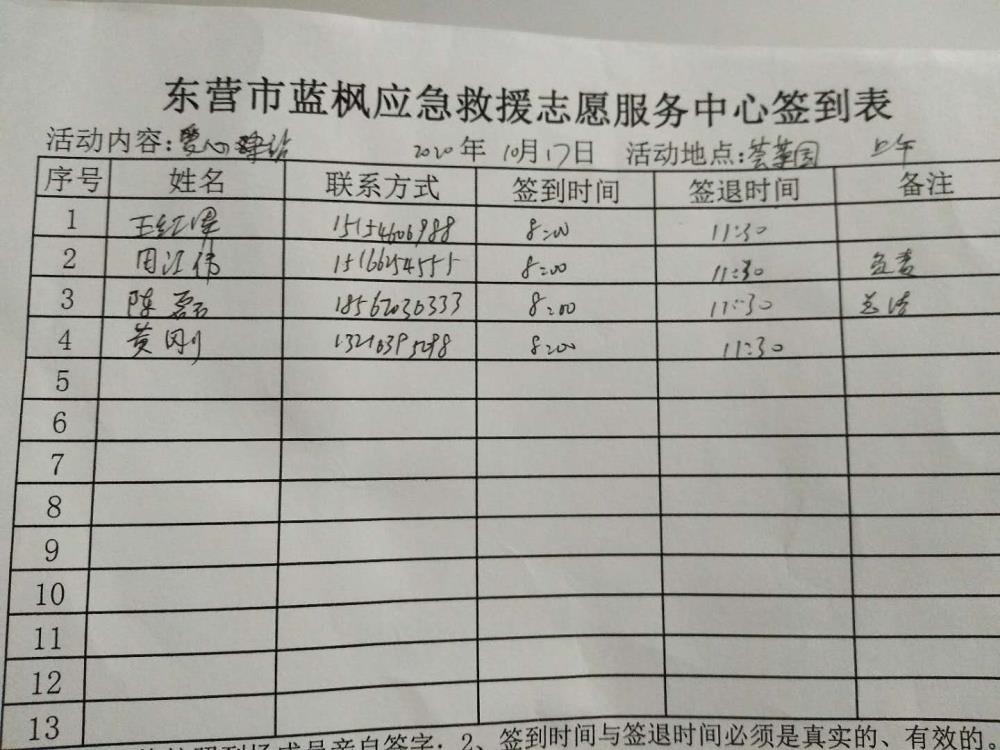 东营市蓝枫应急救援志愿服务中心签到表
活动内容:爱心驿站 2020年 10月17日 活动地点: 上午
序号 姓名 联系方式 签到时间 签退时间 备注
1 王红軍 15154606988 8:00 11:30
2 周江伟 15166254555 8:00 11:30 负责
3 陈磊 18562030333 8:00 11:30 总结
4 黄刚 13210395298 8:00 11:30
5
6
7
8
9
10
11
12
13
到场成员亲自签字; 2、签到时间与签退时间必须是真实的、有效的。